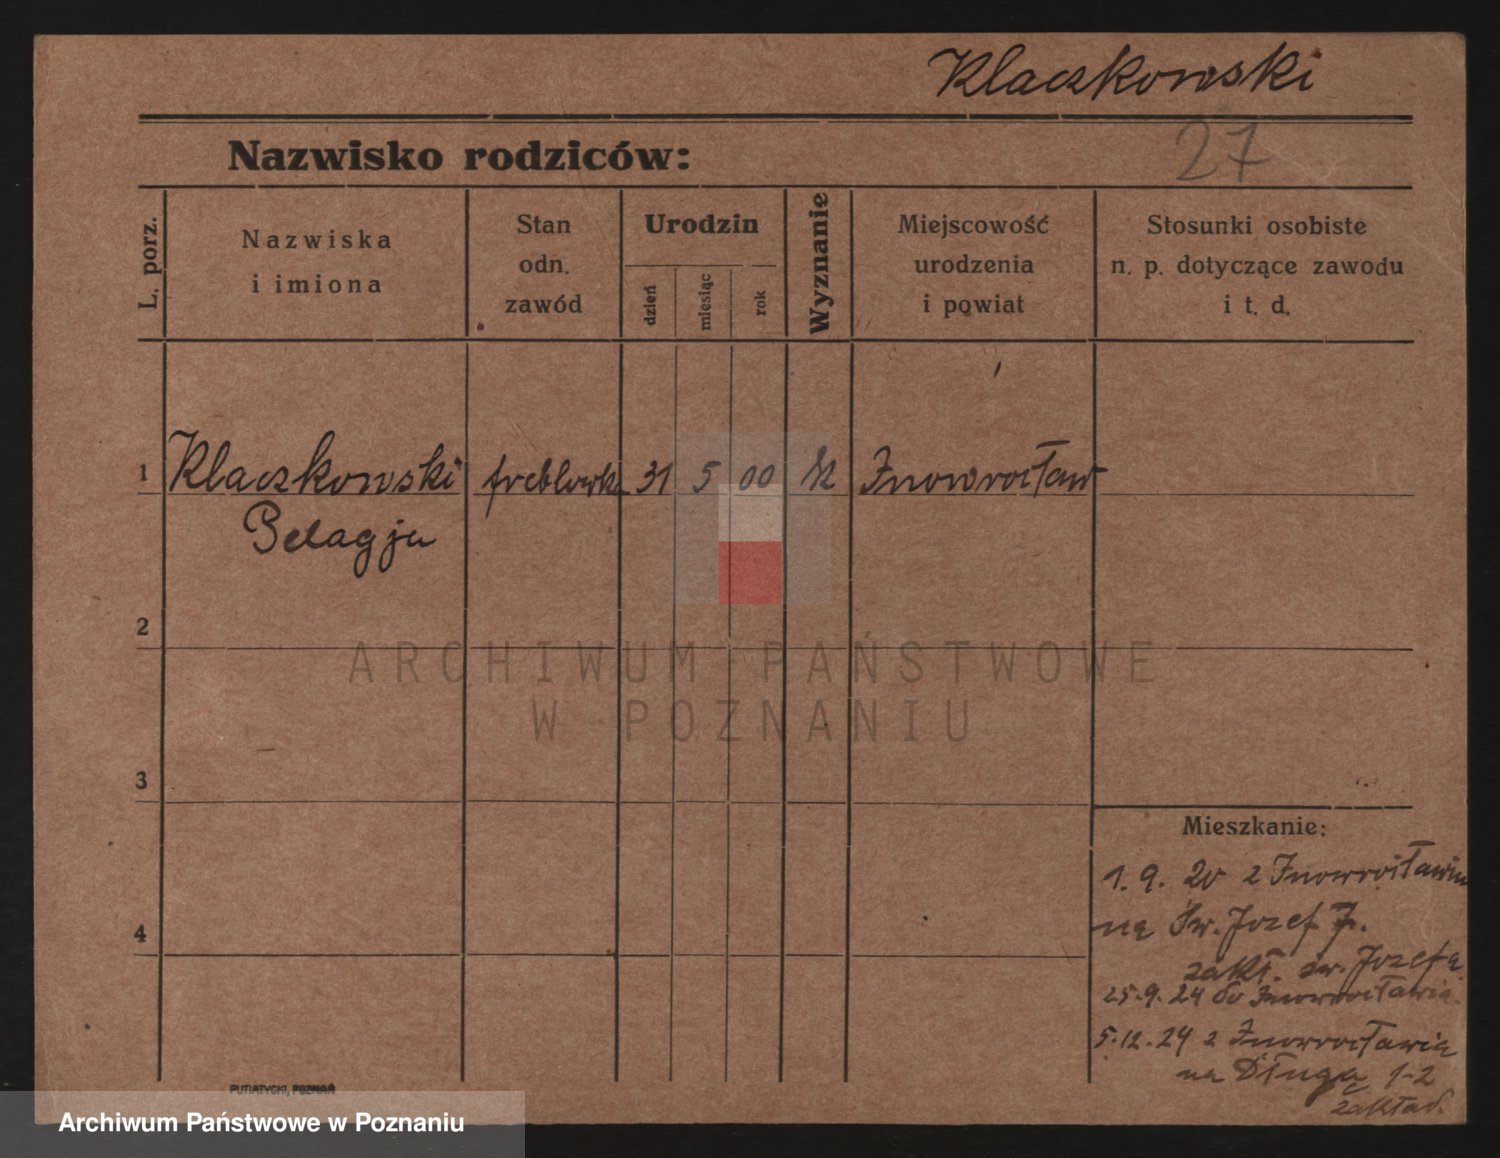 Klaczkowski
27
Nazwisko rodziców:
L. porz.
Nazwiska
i imiona
Stan
odn.
zawód
Urodzin
dzień
miesiąc
rok
Wyznanie
Miejscowość
urodzenia
i powiat
Stosunki osobiste
n. p. dotyczące zawodu
i t. d.
1 Klaczkowski freblowk 31 5 00 rk Inowrocław
Pelagja
2
3
4
Mieszkanie:
1. 9. 20 z Inowrocławia
na Św. Józef 7.
zakł. św. Józefa
25.9.24 do Inowrocławia.
5.12.24 z Inowrocławia
na Długą 1-2
zakład.
PUTIATYCKI, POZNAŃ
ARCHIWUM PAŃSTWOWE
W POZNANIU
Archiwum Państwowe w Poznaniu